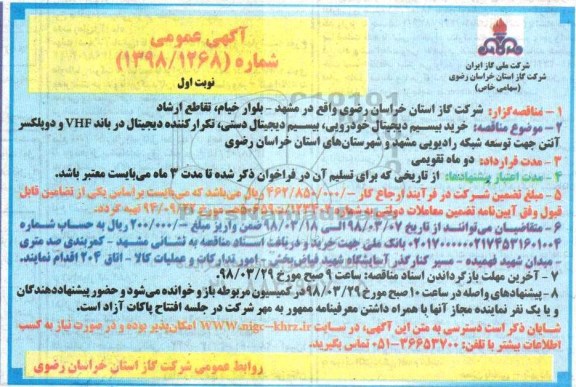 آگهی عمومی
شماره (۱۳۹۸/۱۲۶۸)
نوبت اول
شرکت ملی گاز ایران
شرکت گاز استان خراسان رضوی
(سهامی خاص)
۱ - مناقصه‌گزار: شرکت گاز استان خراسان رضوی واقع در مشهد - بلوار خیام، تقاطع ارشاد
۲ - موضوع مناقصه: خرید بیسیم دیجیتال خودرویی، بیسیم دیجیتال دستی، تکرارکننده دیجیتال در باند VHF و دوپلکسر
آنتن جهت توسعه شبکه رادیویی مشهد و شهرستان‌های استان خراسان رضوی
۳ - مدت قرارداد: دو ماه تقویمی
۴ - مدت اعتبار پیشنهادها: از تاریخی که برای تسلیم آن در فراخوان ذکر شده تا مدت ۳ ماه می‌بایست معتبر باشد.
۵ - مبلغ تضمین شرکت در فرآیند ارجاع کار -/۴۶۲/۸۵۰/۰۰۰ ریال می‌باشد که می‌بایست براساس یکی از تضامین قابل
قبول وفق آیین‌نامه تضمین معاملات دولتی به شماره مورخ ۹۴/۰۹/۲۲ تهیه گردد.
۶ - متقاضیان می‌توانند از تاریخ ۹۸/۰۳/۰۷ الی ۹۸/۰۳/۱۸ ضمن واریز مبلغ -/۲۰۰/۰۰۰ ریال به حساب شماره
۰۲۱۷۰۰۰۰۰۰۲۱۷۴۵۳۱۶۰۱۰۴ بانک ملی جهت خرید و دریافت اسناد مناقصه به نشانی مشهد - کمربندی صد متری
- میدان شهید فهمیده - مسیر کنارگذر آسایشگاه شهید فیاض‌بخش - امور تدارکات و عملیات کالا - اتاق ۲۰۴ اقدام نمایند.
۷ - آخرین مهلت بازگرداندن اسناد مناقصه: ساعت ۹ صبح مورخ ۹۸/۰۳/۲۹.
۸ - پیشنهادهای واصله در ساعت ۱۰ صبح مورخ ۹۸/۰۳/۲۹ در کمیسیون مربوطه باز و خوانده می‌شود و حضور پیشنهاددهندگان
و یا یک نفر نماینده مجاز آنها با همراه داشتن معرفینامه ممهور به مهر شرکت در جلسه افتتاح پاکات آزاد است.
شایان ذکر است دسترسی به متن این آگهی، در سایت www.nigc-khrz.ir امکان‌پذیر بوده و در صورت نیاز به کسب
اطلاعات بیشتر با تلفن: ۳۶۶۵۳۷۰۰-۰۵۱ تماس بگیرید.
روابط عمومی شرکت گاز استان خراسان رضوی